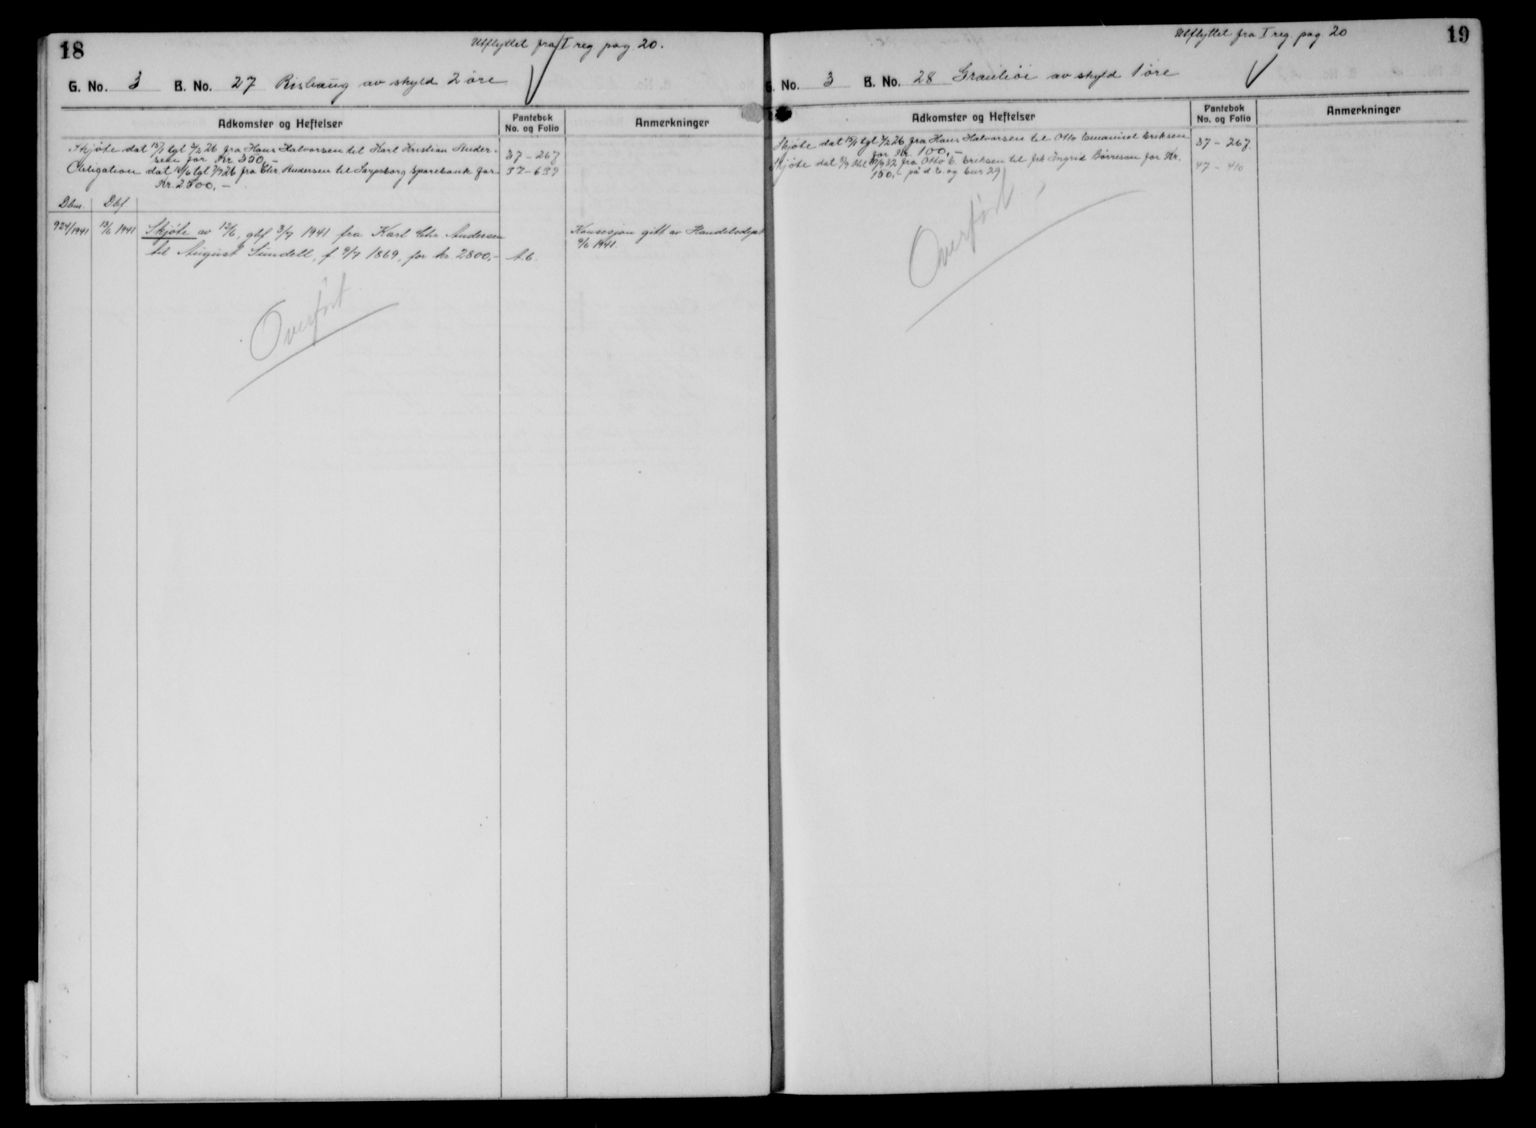 18
Utflyttet fra I reg pag 20.
G. No. 3 B. No. 27 Rishaug av skyld 2 øre
Adkomster og Heftelser
Pantebok
No. og Folio
Anmerkninger
Skjøte dat 15/1 tgl 3/2 26 fra Hans Halvorsen til Karl Kristian Ander-
sen for Kr. 200,-
37 - 267
Obligation dat tgl 26 fra Chr. Andersen til Sarpsborg Sparebank for
Kr. 2500,-
37 - 639
Dbnr. Dbf
924/1941 13/6 1941 Skjøte av 12/6, glf 3/7 1941 fra Karl Chr. Andersen
til August Sundell, f 9/7 1869, for kr. 2800,- A.6.
Konsesjon gitt av Handelsdept
9/6 1941.
Overført
19
Utflyttet fra I reg pag 20
G. No. 3 B. No. 28 av skyld 1 øre
Adkomster og Heftelser
Pantebok
No. og Folio
Anmerkninger
Skjøte dat 15/1 tgl 3/2 26 fra Hans Halvorsen til Otto Emanuel Eriksen
for Kr. 100,-
37 - 267
Skjøte dat fra Otto E. Eriksen til frk Ingrid Børresen for Kr.
150,-
47 - 410
Overført